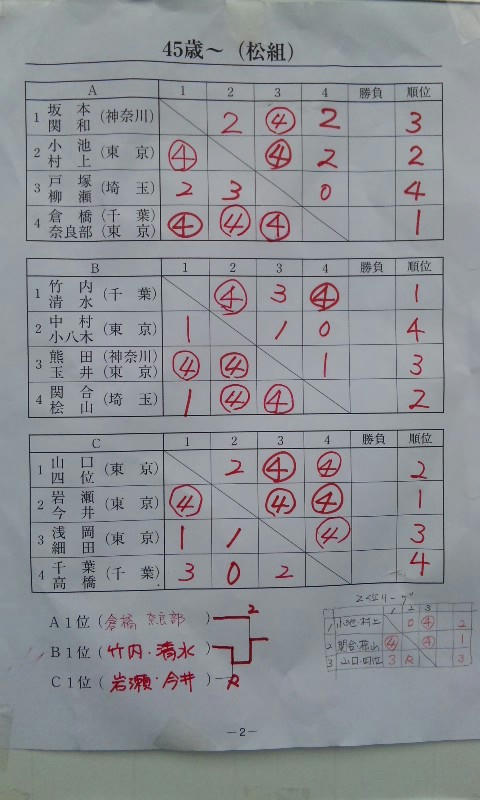 45歳～（松組）
A 1 2 3 4 勝負 順位
1 坂本 関和 (神奈川) 2 ④ 2 3
2 小池 村上 (東京) ④ ④ 2 2
3 戸塚 柳瀬 (埼玉) 2 3 0 4
4 倉橋 (千葉) 奈良部 (東京) ④ ④ ④ 1
B 1 2 3 4 勝負 順位
1 竹内 清水 (千葉) ④ 3 ④ 1
2 中村 小八木 (東京) 1 1 0 4
3 熊田 (神奈川) 玉井 (東京) ④ ④ 1 3
4 関合 桧山 (埼玉) 1 ④ ④ 2
C 1 2 3 4 勝負 順位
1 山口 四位 (東京) 2 ④ ④ 2
2 岩瀬 今井 (東京) ④ ④ ④ 1
3 浅岡 細田 (東京) 1 1 ④ 3
4 千葉 高橋 (千葉) 3 0 2 4
A1位（倉橋 奈良部） 2
B1位（竹内・清水）
C1位（岩瀬・今井） R
2位リーグ
1 2 3
1 小池・村上 0 ④ 2
2 関合・桧山 ④ ④ 1
3 山口・四位 3 R 3
－2－